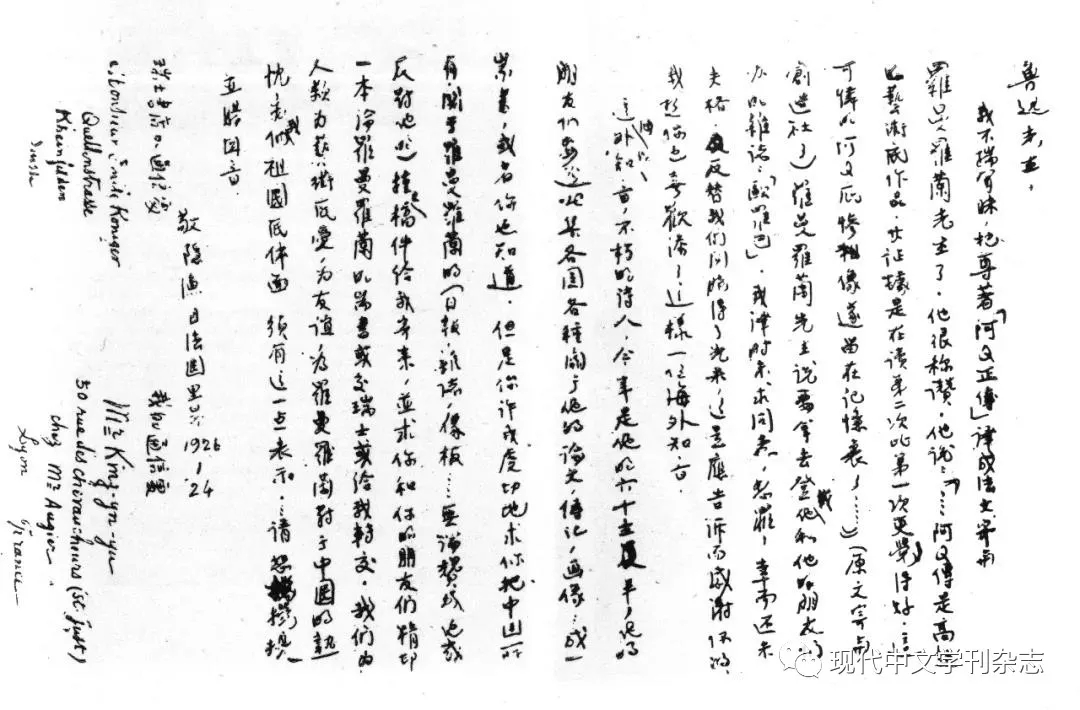 魯迅先生，
我不揣冒昧，把尊著「阿Q正傳」譯成法文寄與
羅曼羅蘭先生了。他很稱讚。他說：「……阿Q傳是高超
的藝術底作品，其証據是在讀第二次比第一次更覺得好。這
可憐的阿Q底慘像遂留在記憶裏了……」（原文寄與
創造社了）羅曼羅蘭先生說要拿去登他和他的朋友們
办的雜誌：「歐羅巴」。我譯時未求同意，恕罪！幸而还未
失格，反替我們同胞得了光彩，這是應告訴而感謝你的。
我想你也喜歡添了這樣一位海外知音。
這海外知音，不朽的詩人，今年是他的六十生年，他的
朋友們要趁此集各国各種關于他的論文，傳記，画像，成一
或者你也知道。但是你許我虔切地求你把中国所
有關于羅曼羅蘭的（日報，雜誌，像板……無論贊成他或
反對他的）種種稿件給我寄來，並求你和你的朋友們精印
一本論羅曼羅蘭的專書或交瑞士或給我轉交。我們为
人類为藝術底愛，为友誼，为羅曼羅蘭對于中國的熱
忱，为我們祖國底体面 須有這一点表示……請恕攪擾，
並賜回音
敬隱漁自法國里昂 1926，1，24
瑞士書店的通信處
Quellenstrasse
Rheinfelden
Suisse
我的通信處
Mr King-yn-yu
50 rue des chevaucheurs (St. just)
chez Mme Augier
Lyon France
现代中文学刊杂志